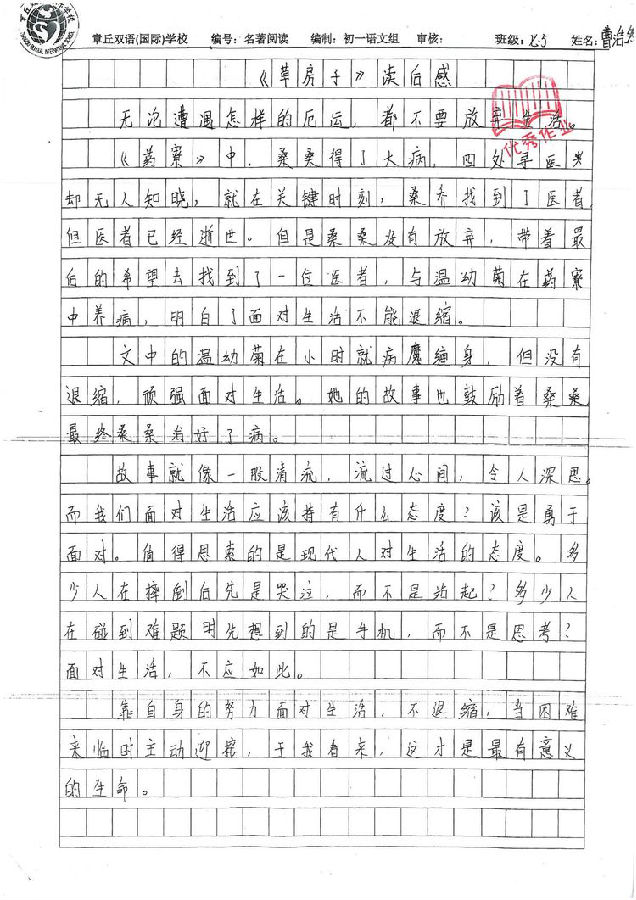 章丘双语(国际)学校 编号：名著阅读 编制：初一语文组 审核： 班级： 姓名：曹治
《草房子》读后感
优秀作业
无论遭遇怎样的厄运，都不要放弃生活。
《药寮》中，桑桑得了大病，四处寻医
却无人知晓，就在关键时刻，桑乔找到了医者，
但医者已经逝世。但是桑桑没有放弃，带着最
后的希望去找到了一位医者，与温幼菊在药寮
中养病，明白了面对生活不能退缩。
文中的温幼菊在小时就病魔缠身，但没有
退缩，倾强面对生活。她的故事也鼓励着桑桑
最终桑桑治好了病。
故事就像一股清流，流过心间，令人深思。
而我们面对生活应该持有什么态度？该是勇于
面对。值得思索的是现代人对生活的态度。多
少人在摔倒后先是哭泣，而不是站起？多少人
在碰到难题时先想到的是手机，而不是思考？
面对生活，不应如此。
靠自身的努力面对生活，不退缩，当困难
来临时主动迎接，于我看来，这才是最有意义
的生命。